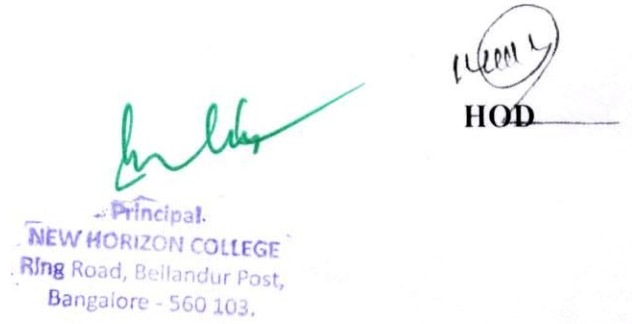 HOD
Principal.
NEW HORIZON COLLEGE
Ring Road, Bellandur Post,
Bangalore - 560 103.